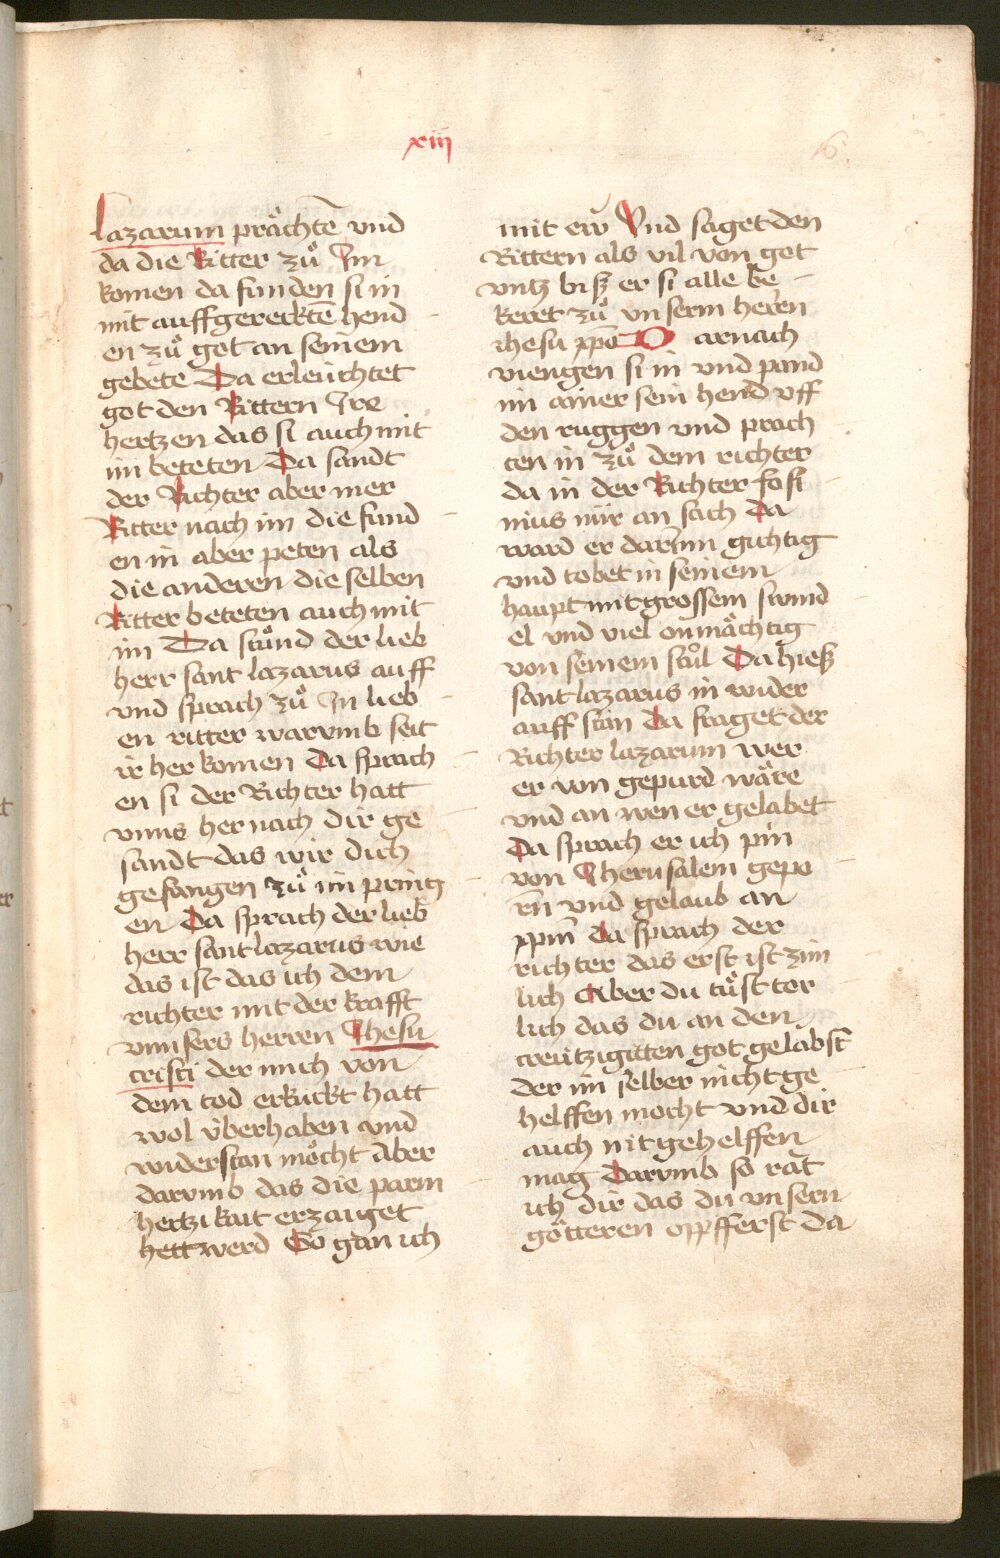 xiii
16.
Lazarum prächtē vnd
da die Ritter zuͦ Im
komen da funden si in
mit auffgerecktē hend
en zuͦ got an seinem
gebete Da erleuchtet
got den Rittern Ire
hertzen das si auch mit
im beteten Da sandt
der Richter aber mer
Ritter nach im die fund
en in aber peten als
die anderen die selben
Ritter beteten auch mit
im Da stuͦnd der lieb
herr sant lazarus auff
vnd sprach zuͦ In lieb
en ritter warvmb seit
ir her komen Da sprach
en si der Richter hatt
vnns her nach dir ge
sandt das wir dich
gefangen zuͦ im pring
en Da sprach der lieb
herr sant lazarus wie
das ist das ich dem
richter mit der krafft
vnnsers herren Jhesu
cristi der mich von
dem tod erkückt hatt
wol v̈berhaben vnd
widerstan möcht Aber
darvmb das die parm
hertzikait erzaiget
hett werd So gan ich
mit ew Vnd saget den
Rittern als vil von got
vntz bisz er si alle be
keret zuͦ vnserm herren
ihesu xp̄o Darnach
viengen si in vnd pand
im ainer sein hend vff
den ruggen vnd prach
ten in zuͦ dem richter
da in der Richter fosi
nius nür an sach Da
ward er darinn guhtig
vnd tobet in seinem
haupt mit grossem swind
el vnd viel onmächtig
von seinem stuͦl Da hiesz
sant lazarus in wider
auff stan Da fraget der
Richter lazarum wer
er von gepurd wäre
vnd an wen er gelabet
Da sprach er ich pin
von Jherusalem gepo
rn̄ vnd gelaub an
xpm̄ Da sprach der
richter das erst ist zim
lich Aber du tuͦst tor
lich das du an den
creützigitten got gelabst
der im selber nicht ge
helffen mocht vnd dir
auch nit gehelffen
mag Darvmb so rat
ich dir das du vnsern
götteren opfferst Da